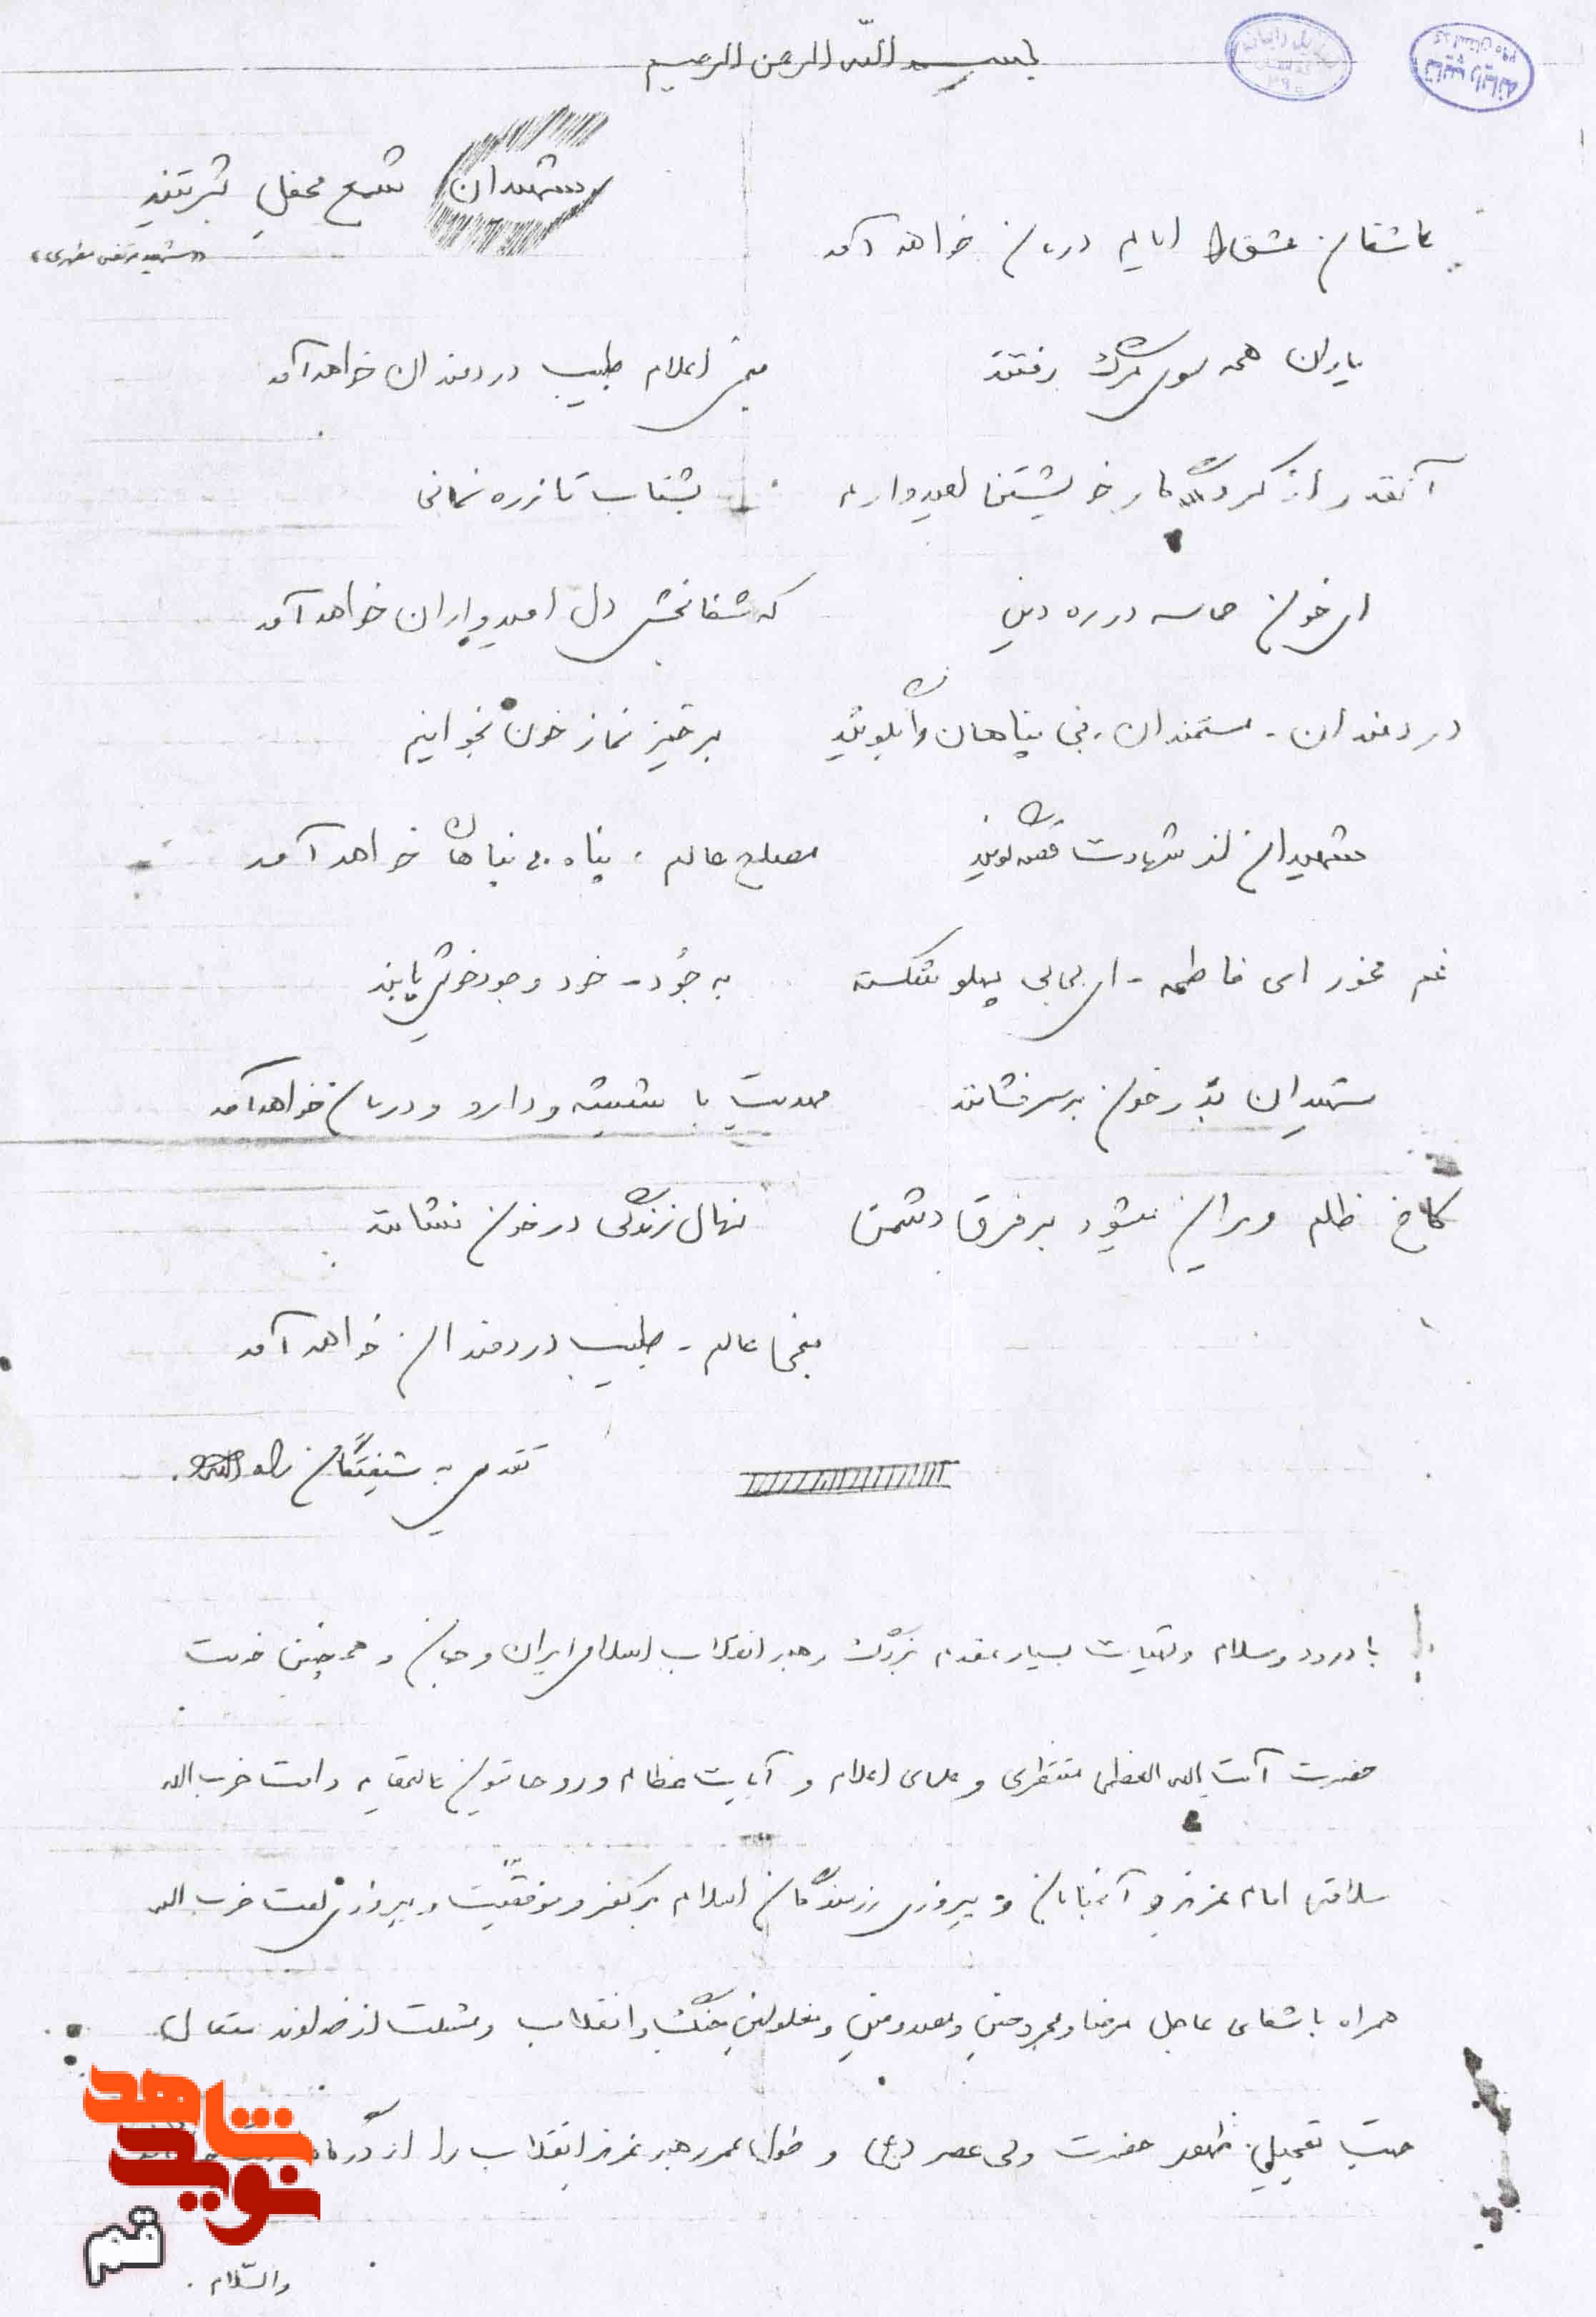 بسم الله الرحمن الرحیم
شهیدان شمع محفل بشریتند
«شهید مرتضی مطهری»
عاشقان عشق را ایام درمان خواهد آمد
یاران همه سوی مرگ رفتند
منجی اعلام طبیب دردمندان خواهد آمد
آنقدر از کردگار خویشتن امیدوارم
بشتاب تا ز ره نمانی
ای خون حماسه در ره دین
که شفابخش دل امیدواران خواهد آمد
دردمندان - مستمندان، بی پناهان را بگوئید
برخیز نماز خون بخوانیم
شهیدان از شهادت قصه گویند
مصلح عالم، پناه بی پناهان خواهد آمد
غم مخور ای فاطمه - ای بی بی پهلو شکسته
به جُود - خود وجود خویش یابند
شهیدان بذر خون بر سر فشانند
مهدیت با شیشه و دارو و درمان خواهد آمد
کاخ ظلم ویران میشود بر فرق دشمن
نهال زندگی در خون نشانند
منجی عالم - طبیب دردمندان خواهد آمد
تقدیم به شیفتگان راه الله.
با درود و سلام و تحیات بسیار بمقدم بزرگ رهبر انقلاب اسلامی ایران و جهان و همچنین خدمت
حضرت آیت الله العظمی منتظری و علمای اعلام و آیات عظام و روحانیون عالیمقام و امت حزب الله
سلامتی امام عزیز و آنجنابان و پیروزی رزمندگان اسلام بر کفر و موفقیّت و پیروزی امت حزب الله
همراه با شفای عاجل مرضا و مجروحین و مصدومین و معلولین جنگ و انقلاب و مسئلت از خداوند متعال
جهت تعجیل ظهور حضرت ولی عصر (عج) و طول عمر رهبر عزیز انقلاب را از
والسّلام.
شاهد
نوید
قم